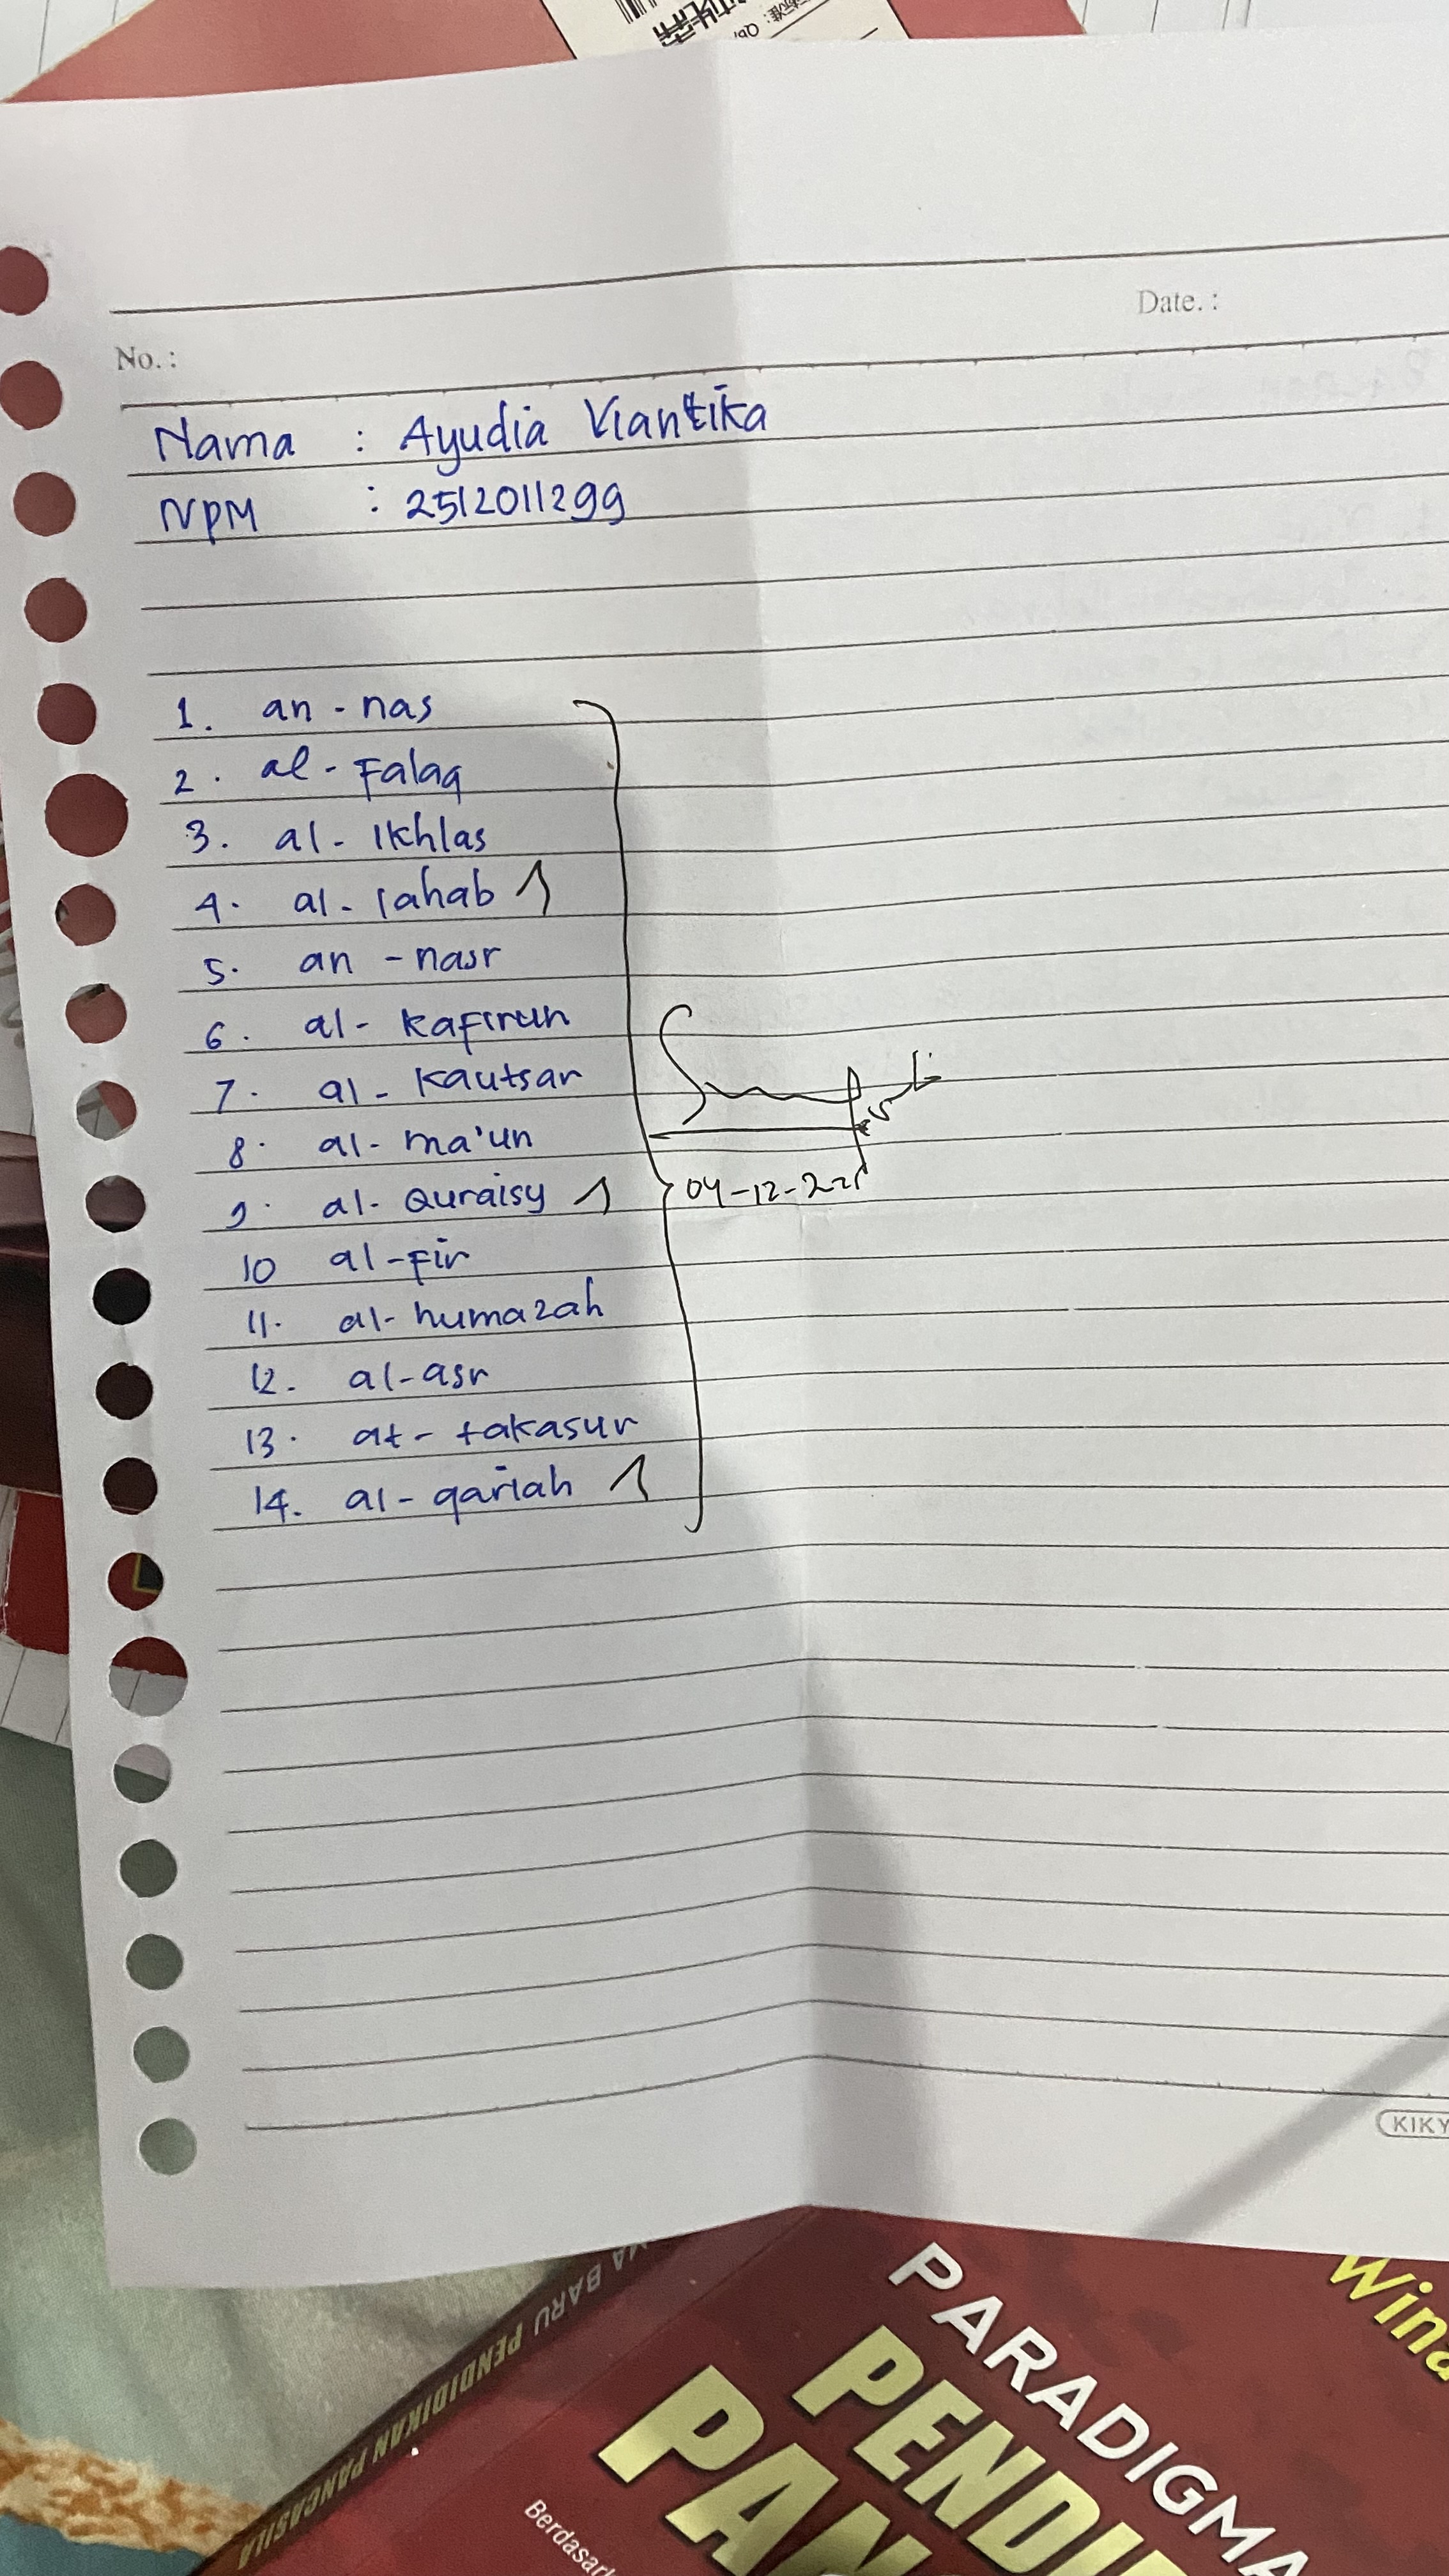 No. :
Date. :
Nama : Ayudia Viantika
NPM : 2512011299
1. an - nas
2. al - Falaq
3. al - Ikhlas
4. al - lahab
5. an - nasr
6. al - Kafirun
7. al - Kautsar
8. al - ma'un
9. al - Quraisy
10 al - Fir
11. al - humazah
12. al - asr
13. at - takasur
14. al - qariah
04-12-
KIKY
PARADIGMA
PENDI
PAN
Berdasar
Wina
MA BARU PENDIDIKAN PANCASILA